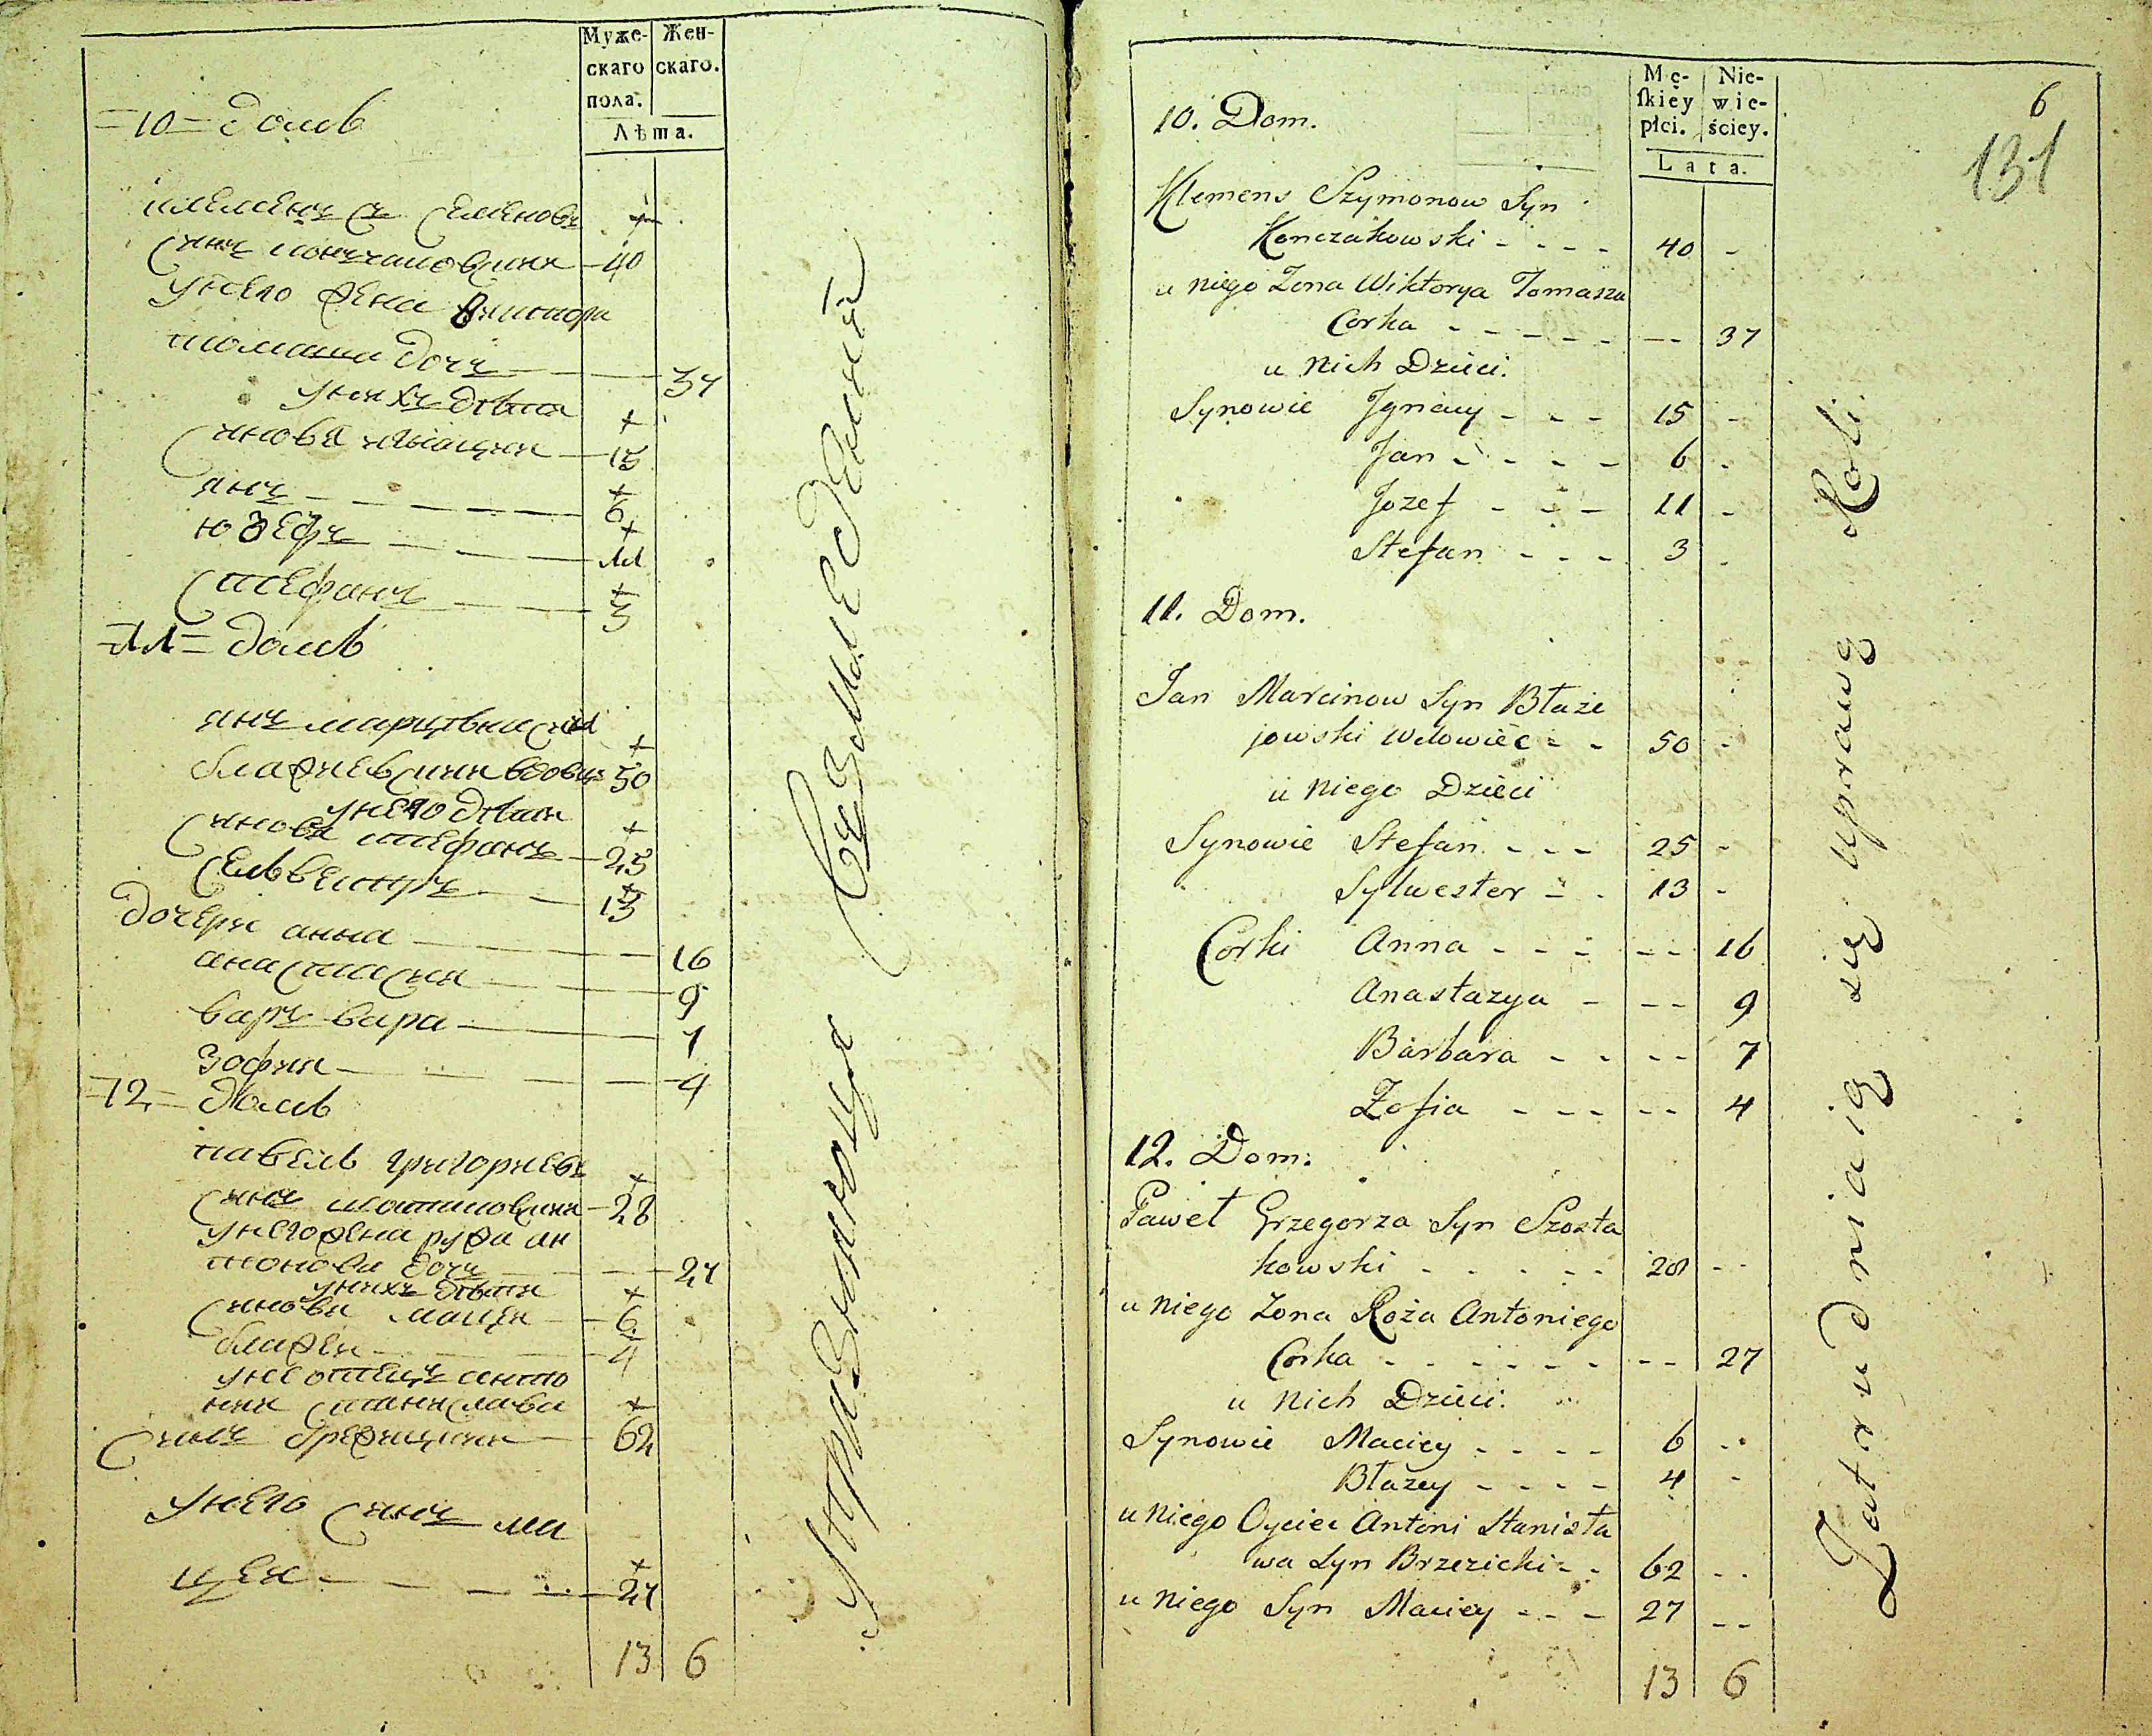 Муже-
скаго
пола.
Жен-
скаго.
Лѣта.
=10= домъ
Клеменсъ Семеновъ
сынъ Кончаковский 40
у него жена Виктора
томаша дочь 37
у нихъ дѣти
сыновя игнаций 15
янъ 6
юзефъ 11
стефанъ 3
=11= домъ
янъ марцѣна сын
блажиевский вдовецъ 50
у него дѣти
сынове стефанъ 25
сельвестръ 13
дочери анна 16
анастасия 9
варъвара 7
зофия 4
=12= домъ
павель григориевъ
сынъ шостаковский 28
у него жена ружа ан
тонова дочь 27
у нихъ дѣти
сыновя мацеи 6
блажеи 4
у него отецъ анто
нии станислава
сынъ бржезицкий 62
у него сынъ ма
цеи 27
13 6
Упражняющуя съ земледелий
6
131
Mę-
skiey
płci.
Nie-
wie-
ściey.
Lata.
10. Dom.
Klemens Szymonow Syn
Konczakowski - - - - 40 -
u niego Zona Wiktorya Tomasza
Corka - - - - - - -- 37
u nich Dzieci.
Synowie Jgnacy - - - 15 -
Jan - - - - - 6 -
Jozef - - - 11 -
Stefan - - - 3 -
11. Dom.
Jan Marcinow Syn Błaże
jowski Wdowiec - - 50 -
u niego Dzieci
Synowie Stefan - - - 25 -
Sylwester - - 13 -
Corki Anna - - - - -- 16
Anastazya - -- 9
Barbara - - -- 7
Zofia - - - -- 4
12. Dom.
Paweł Grzegorza Syn Szosta
kowski - - - - - 28 --
u niego Zona Roża Antoniego
Corka - - - - - - -- 27
u nich Dzieci.
Synowie Maciey - - - - 6 --
Błażey - - - - 4 -
u niego Oyciec Antoni Stanisła
wa Syn Brzezicki - - 62 --
u niego Syn Maciey - - - 27 --
13 6
Zatrudniaią się uprawą Roli.